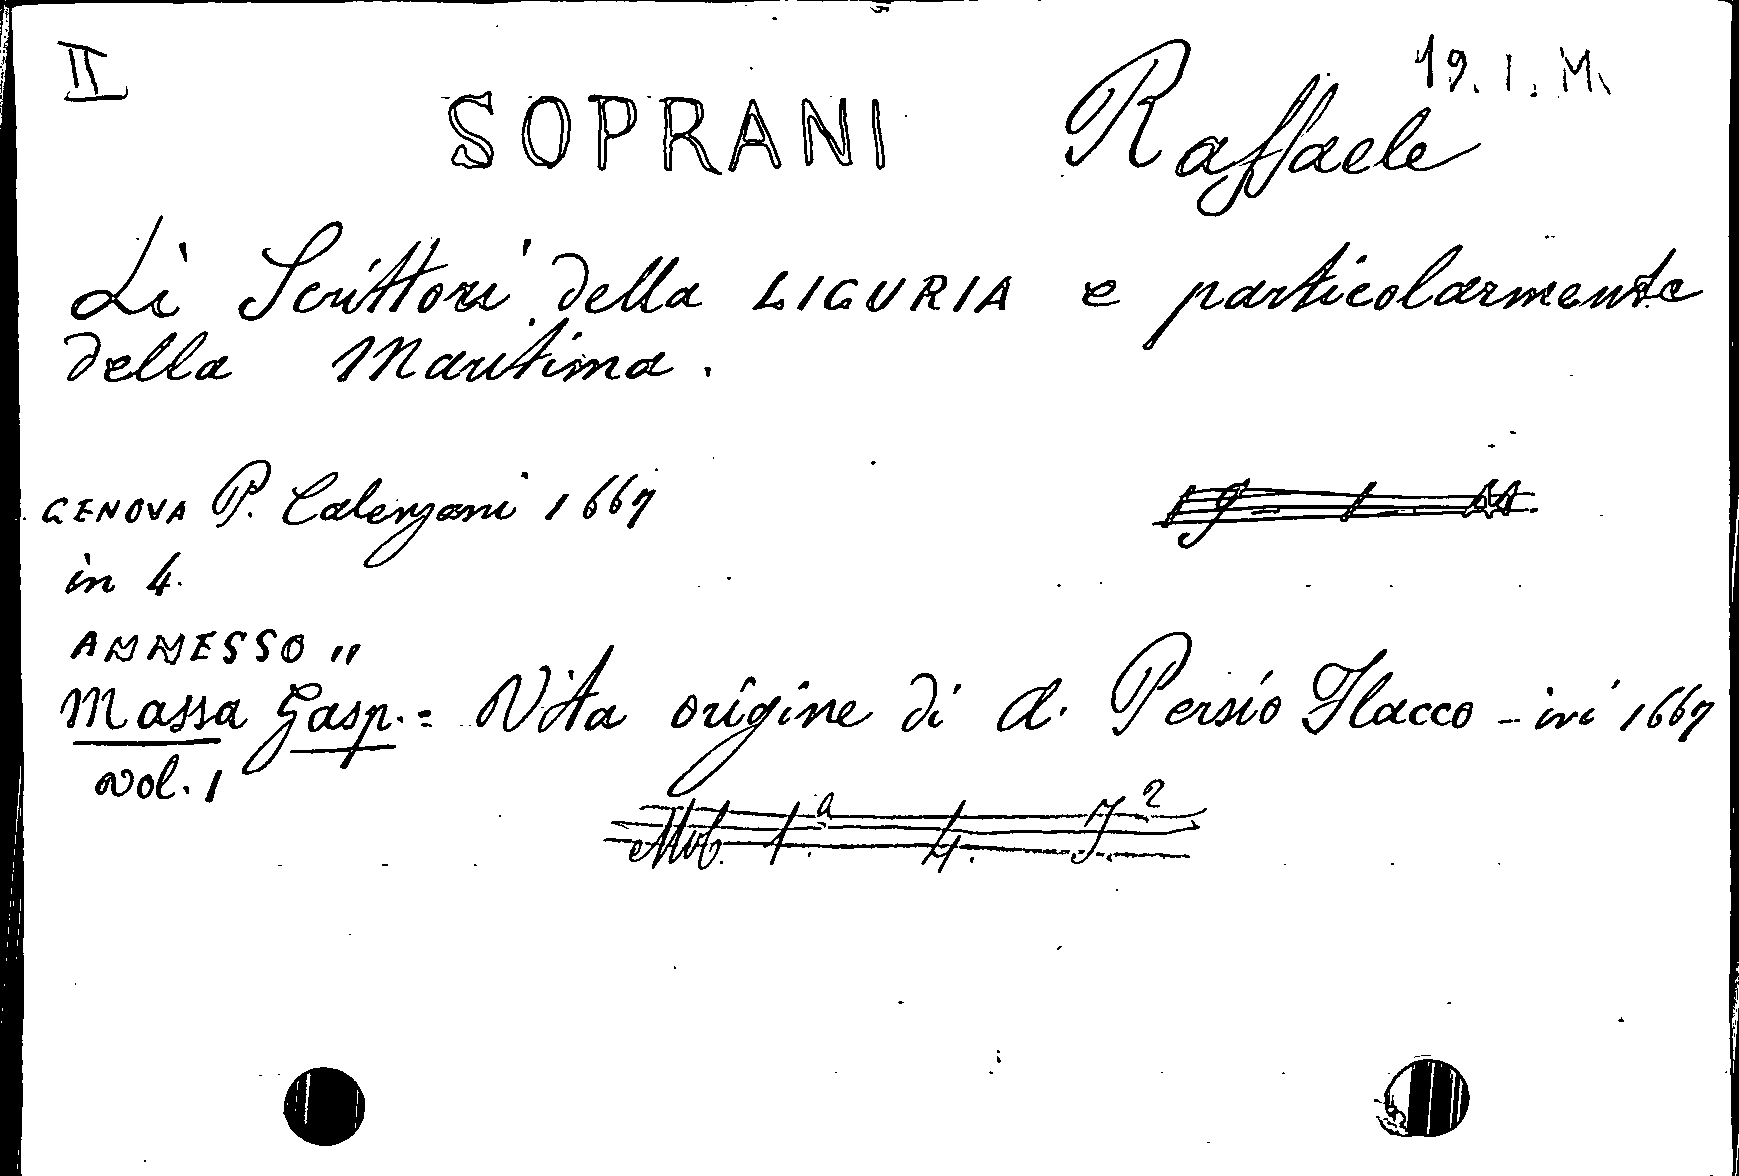 II
19. I. M.
SOPRANI Raffaele
Li Scrittori della LIGURIA e particolarmente
della Maritima.
GENOVA P. Calenzani 1667
19 - 1 - M
in 4.
AMMESSO "
Massa Gasp. = Vita origine di A. Persio Flacco - ivi 1667
vol. 1
Mob. 1.a 4. J.2